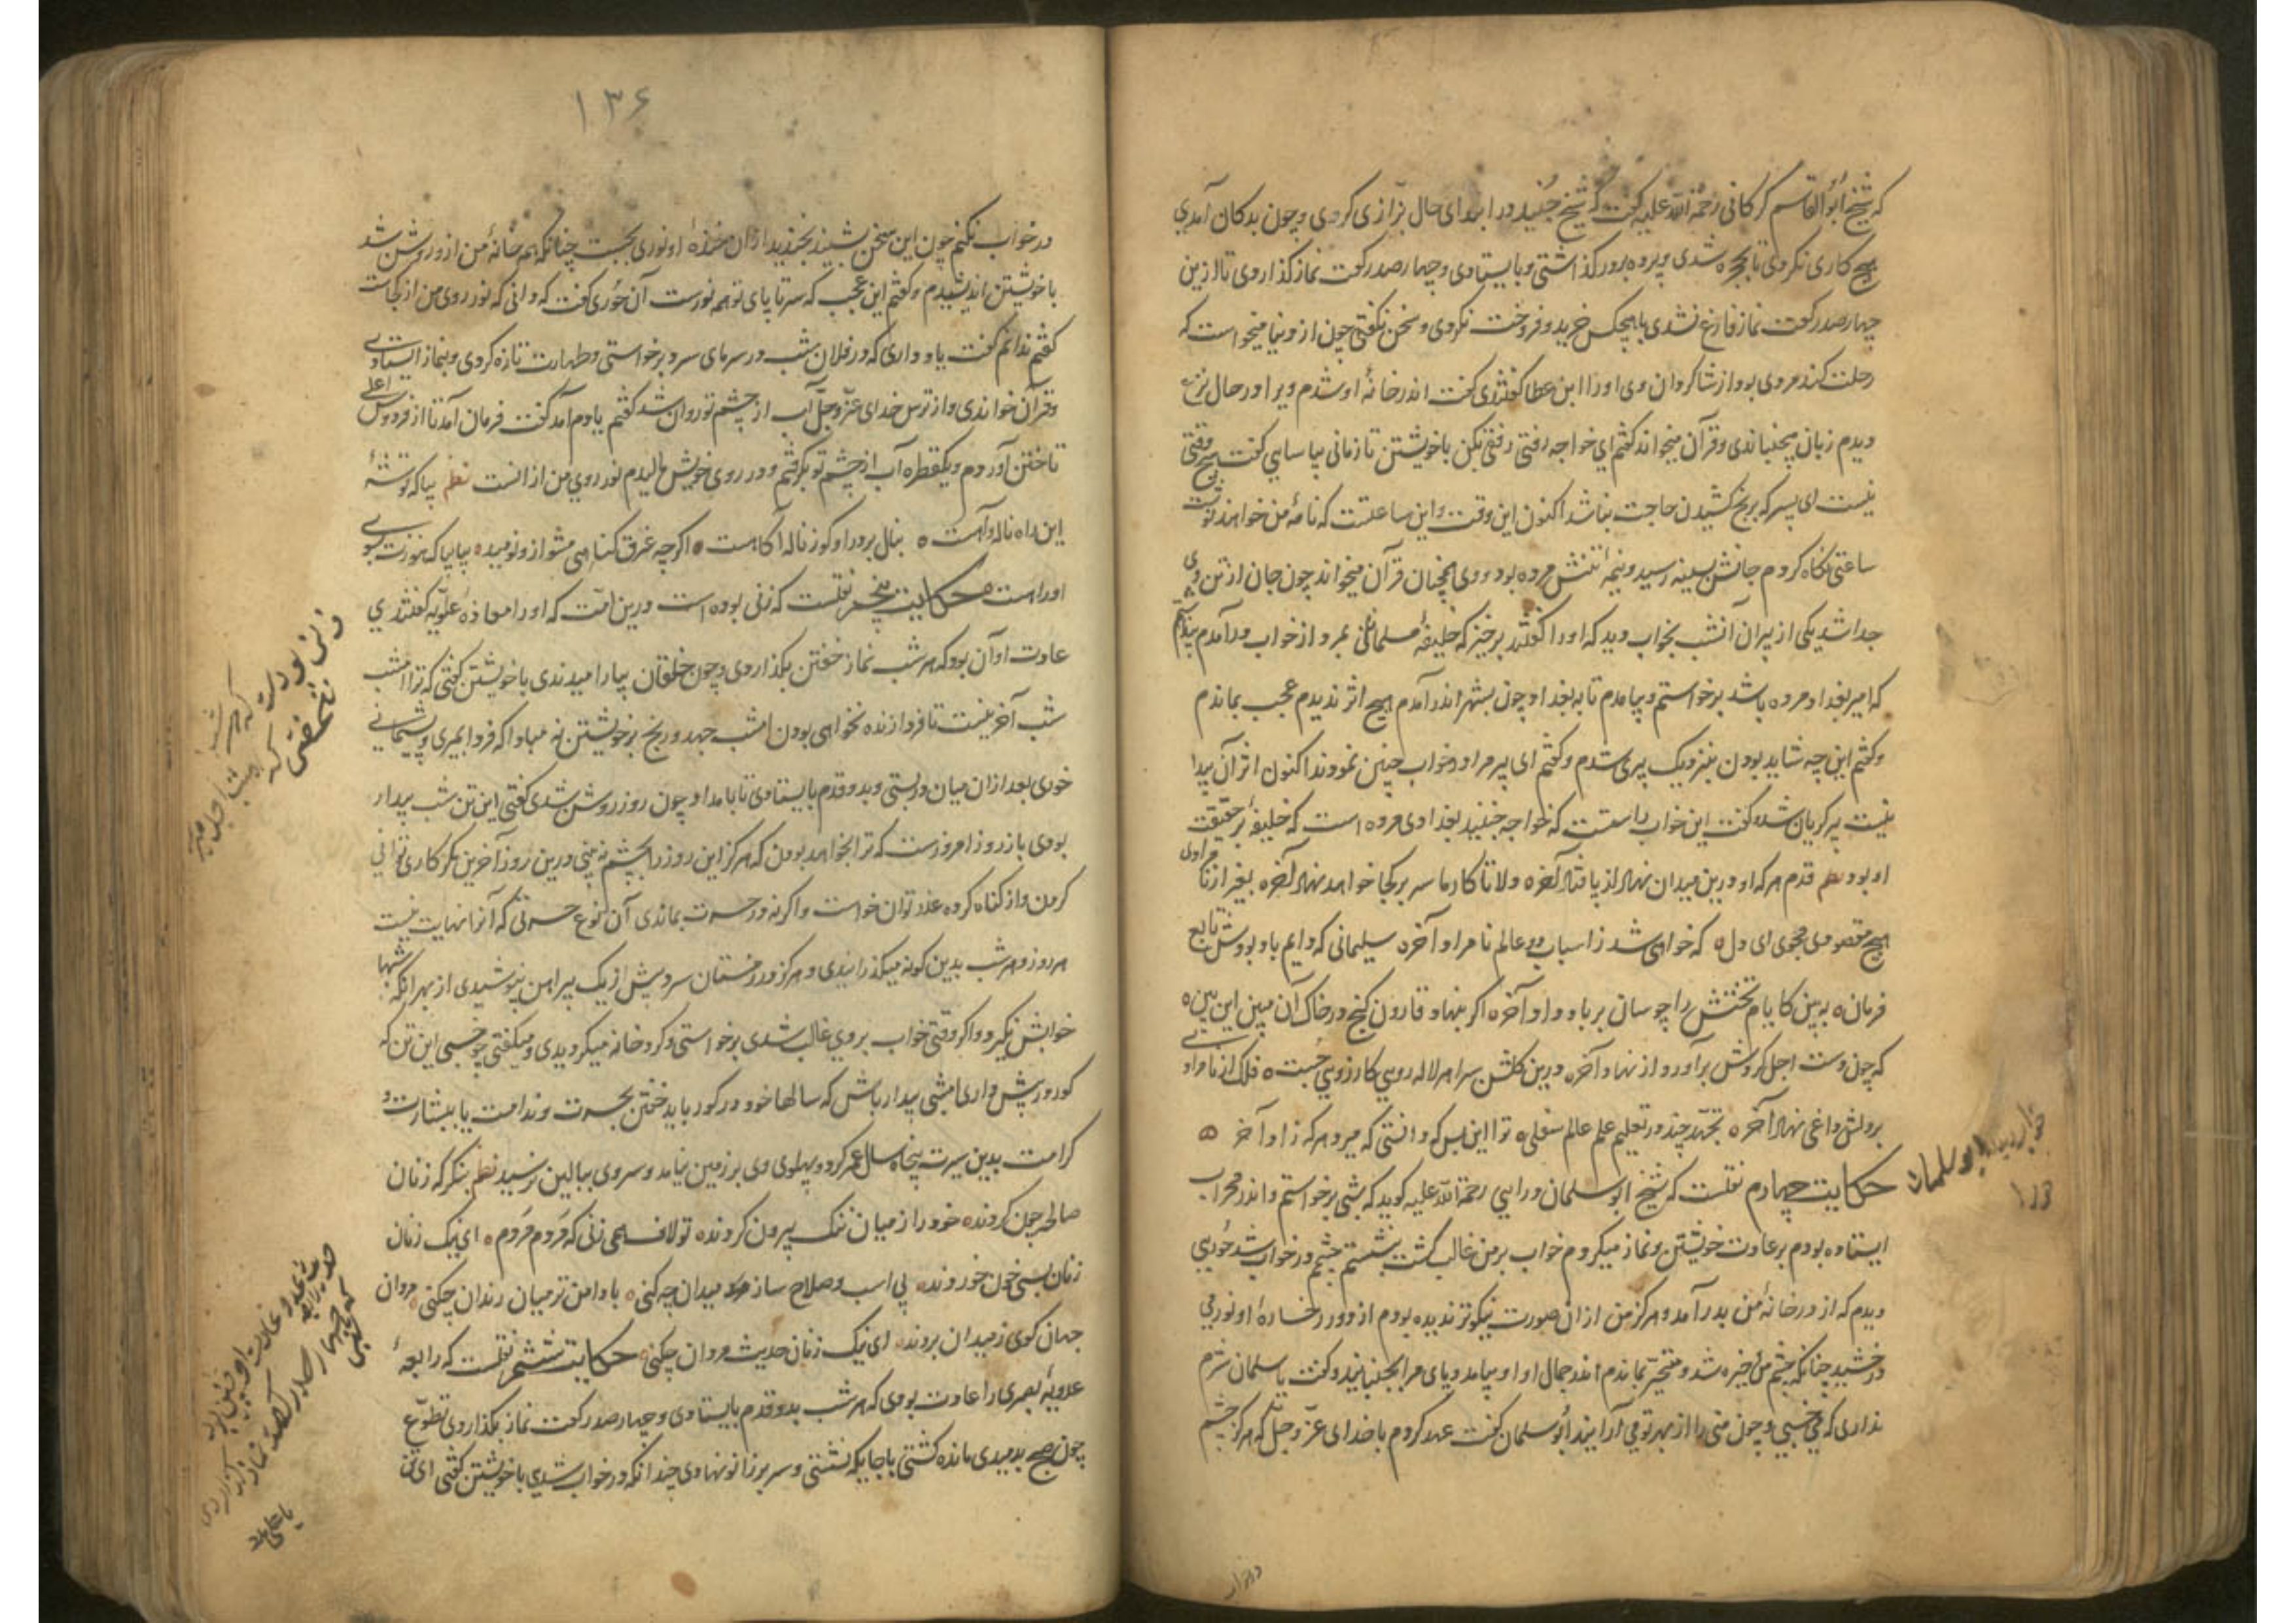 که شیخ ابوالقاسم کرکانی رحمة الله علیه گفت که شیخ جنید در ابتدای حال بزازی کردی و چون بدکان آمدی
هیچ کاری نکردی تا بحجره شدی و پرده برور کذاشتی و بایستادی و چهار صد رکعت نماز کذاردی تا ازین
چهار صد رکعت نماز فارغ نشدی با هیچکس خرید و فروخت نکردی و سخن نکفتی چون از دنیا میخواست که
رحلت کند مردی بود از شاکردان وی او را ابن عطا کفتندی کفت اندر خانهٔ او شدم ویرا در حال نزع
دیدم زبان میجنبانید و قرآن میخواند کفتم ای خواجه رفقی بکن با خویشتن تا زمانی بیاسایی کفت هیچ وقتی
نیست ای پسر که برنج کشیدن حاجت نباشد اکنون این وقت و این ساعتست که نامهٔ من خواهند نوشت
ساعتی نکاه کردم جانش بسینه رسید و نیمهٔ تنش مرده بود و وی همچنان قرآن میخواند چون جان از تن وی
جدا شد یکی از پیران آنشب بخواب دید که او را کفتند برخیز که خلیفهٔ مسلمانان بمرد از خواب درآمدم
که امیر بغداد مرده باشد برخواستم و بیامدم تا به بغداد چون بشهر اندر آمدم هیچ اثر ندیدم عجب بماندم
و کفتم این چه شاید بودن بنزدیک پیری شدم و کفتم ای پیر مرا در خواب چنین نمودند اکنون اثر آن پیدا
نیست پیر کریان شد و کفت این خواب راستست که خواجه جنید بغدادی مرده است که خلیفهٔ بر حقیقت
او بود نظم قدم هر که او درین میدان نهاد از پا فتاد آخر
هیچ مقصودی مجوی ای دل که خواهی شد ز اسباب دو عالم نامراد آخر سلیمانی که دایم باد بودش تابع
فرمان به بین کایام تختش را چو سان بر باد داد آخر اکر بنهاد قارون کنج در خاک آن مبین این بین
که چون دست اجل کردش برآورد از نهاد آخر درین کلشن سرا هر لاله رویی کارزویی جست فلک از نامرادی
بر دلش داغی نهاد آخر تجهد چند در تعلیم علم عالم سفلی ترا این بس که دانستی که میرد هر که زاد آخر
حکایت چهارم نقلست که شیخ ابو سلمان درایی رحمة الله علیه کوید که شبی برخواستم و اندر محراب
ایستاده بودم بر عادت خویشتن و نماز میکردم خواب بر من غالب کشت بنشستم چشمم در خواب شد حوریی
دیدم که از در خانهٔ من بدر آمد و هرکز من از ان صورت نیکوتر ندیده بودم از دور رخسارهٔ او نور می
درخشید چنانکه چشم من خیره شد و متحیر بماندم اندر جمال او او بیامد و پای مرا بجنبانید و کفت یا سلمان شرم
نداری که می خسبی و چون منی را از بهر تو می آرایند ابو سلمان کفت عهد کردم با خدای عز و جل که هرکز چشم
۱۳۶
در خواب نکنم چون این سخن بشنید بخندید از ان خندهٔ او نوری بجست چنانکه همه خانهٔ من از و روشن شد
با خویشتن اندیشیدم و کفتم این عجب که سر تا پای تو همه نورست آن حوری کفت که دانی که نور روی من از کجاست
کفتم ندانم کفت یاد داری که در فلان شب در سرمای سرد برخواستی و طهارت تازه کردی و بنماز ایستادی
و قرآن خواندی و از ترس خدای عز و جل آب از چشم تو روان شد کفتم یادم آمد کفت فرمان آمد تا از فردوس اعلی
تاختن آوردم و یکقطره آب از چشم تو برکرفتم و در روی خویش مالیدم نور روی من از انست نظم بیا که توشهٔ
این راه ناله و آهست بنال بر در او کو ز ناله آکاهست اکر چه غرق کناهی مشو ازو نومید بیا بیا که هنوزت بسوی
او راهست حکایت پنجم نقلست که زنی بوده است درین امت که او را معاذهٔ علویه کفتندی
عادت او آن بود که هر شب نماز خفتن بکذاردی و چون خلقان بیارامیدندی با خویشتن کفتی که ترا امشب
شب آخرینست تا فردا زنده نخواهی بودن امشب جهد و رنج بر خویشتن نه مبادا که فردا بمیری و پشیمانی
خوری بعد از ان میان در بستی و بدو قدم بایستادی تا بامداد چون روز روشن شدی کفتی این تن شب بیدار
بودی باز روز امروزست که ترا بخواهد بودن که هرکز این روز را بچشم نه بینی درین روز آخرین مکر کاری توانی
کردن و از کناه کرده عذر توان خواست و اکر نه در حسرت بماندی آن نوع حسرتی که آنرا نهایت نیست
هر روز و هر شب بدین کونه میکذرانیدی و هرکز در زمستان سرد بیش از یک پیراهن نپوشیدی از بهر انکه شبها
خوابش نکیرد و اکر وقتی خواب بر وی غالب شدی برخواستی و کرد خانه میکردیدی و میکفتی چه خسبی این تن که
کور در پیش داری امشبی بیدار باش که سالها خود در کور باید خفتن بحسرت و ندامت یا ببشارت و
کرامت بدین سیرت پنجاه سال عمر کرد و پهلوی وی بر زمین نیامد و سر وی ببالین نرسید نظم بنکر که زنان
صالحه چون کردند خود را ز میان ننک بیرون کردند تو لاف همی زنی که مردم مردم ای نیک زنان
زنان بسی خون خوردند بی اسب و صلاح ساز میدان چکنی با دامن تر میان رندان چکنی مردان
جهان کوی ز میدان بردند ای نیک زنان حدیث مردان چکنی حکایت ششم نقلست که رابعهٔ
عدویهٔ بصری را عادت بودی که هر شب بدو قدم بایستادی و چهار صد رکعت نماز بکذاردی تطوع
چون صبح بدمیدی مانده کشتی با جایکه نشستی و سر بر زانو نهادی چندانکه در خواب شدی با خویشتن کفتی ای تن